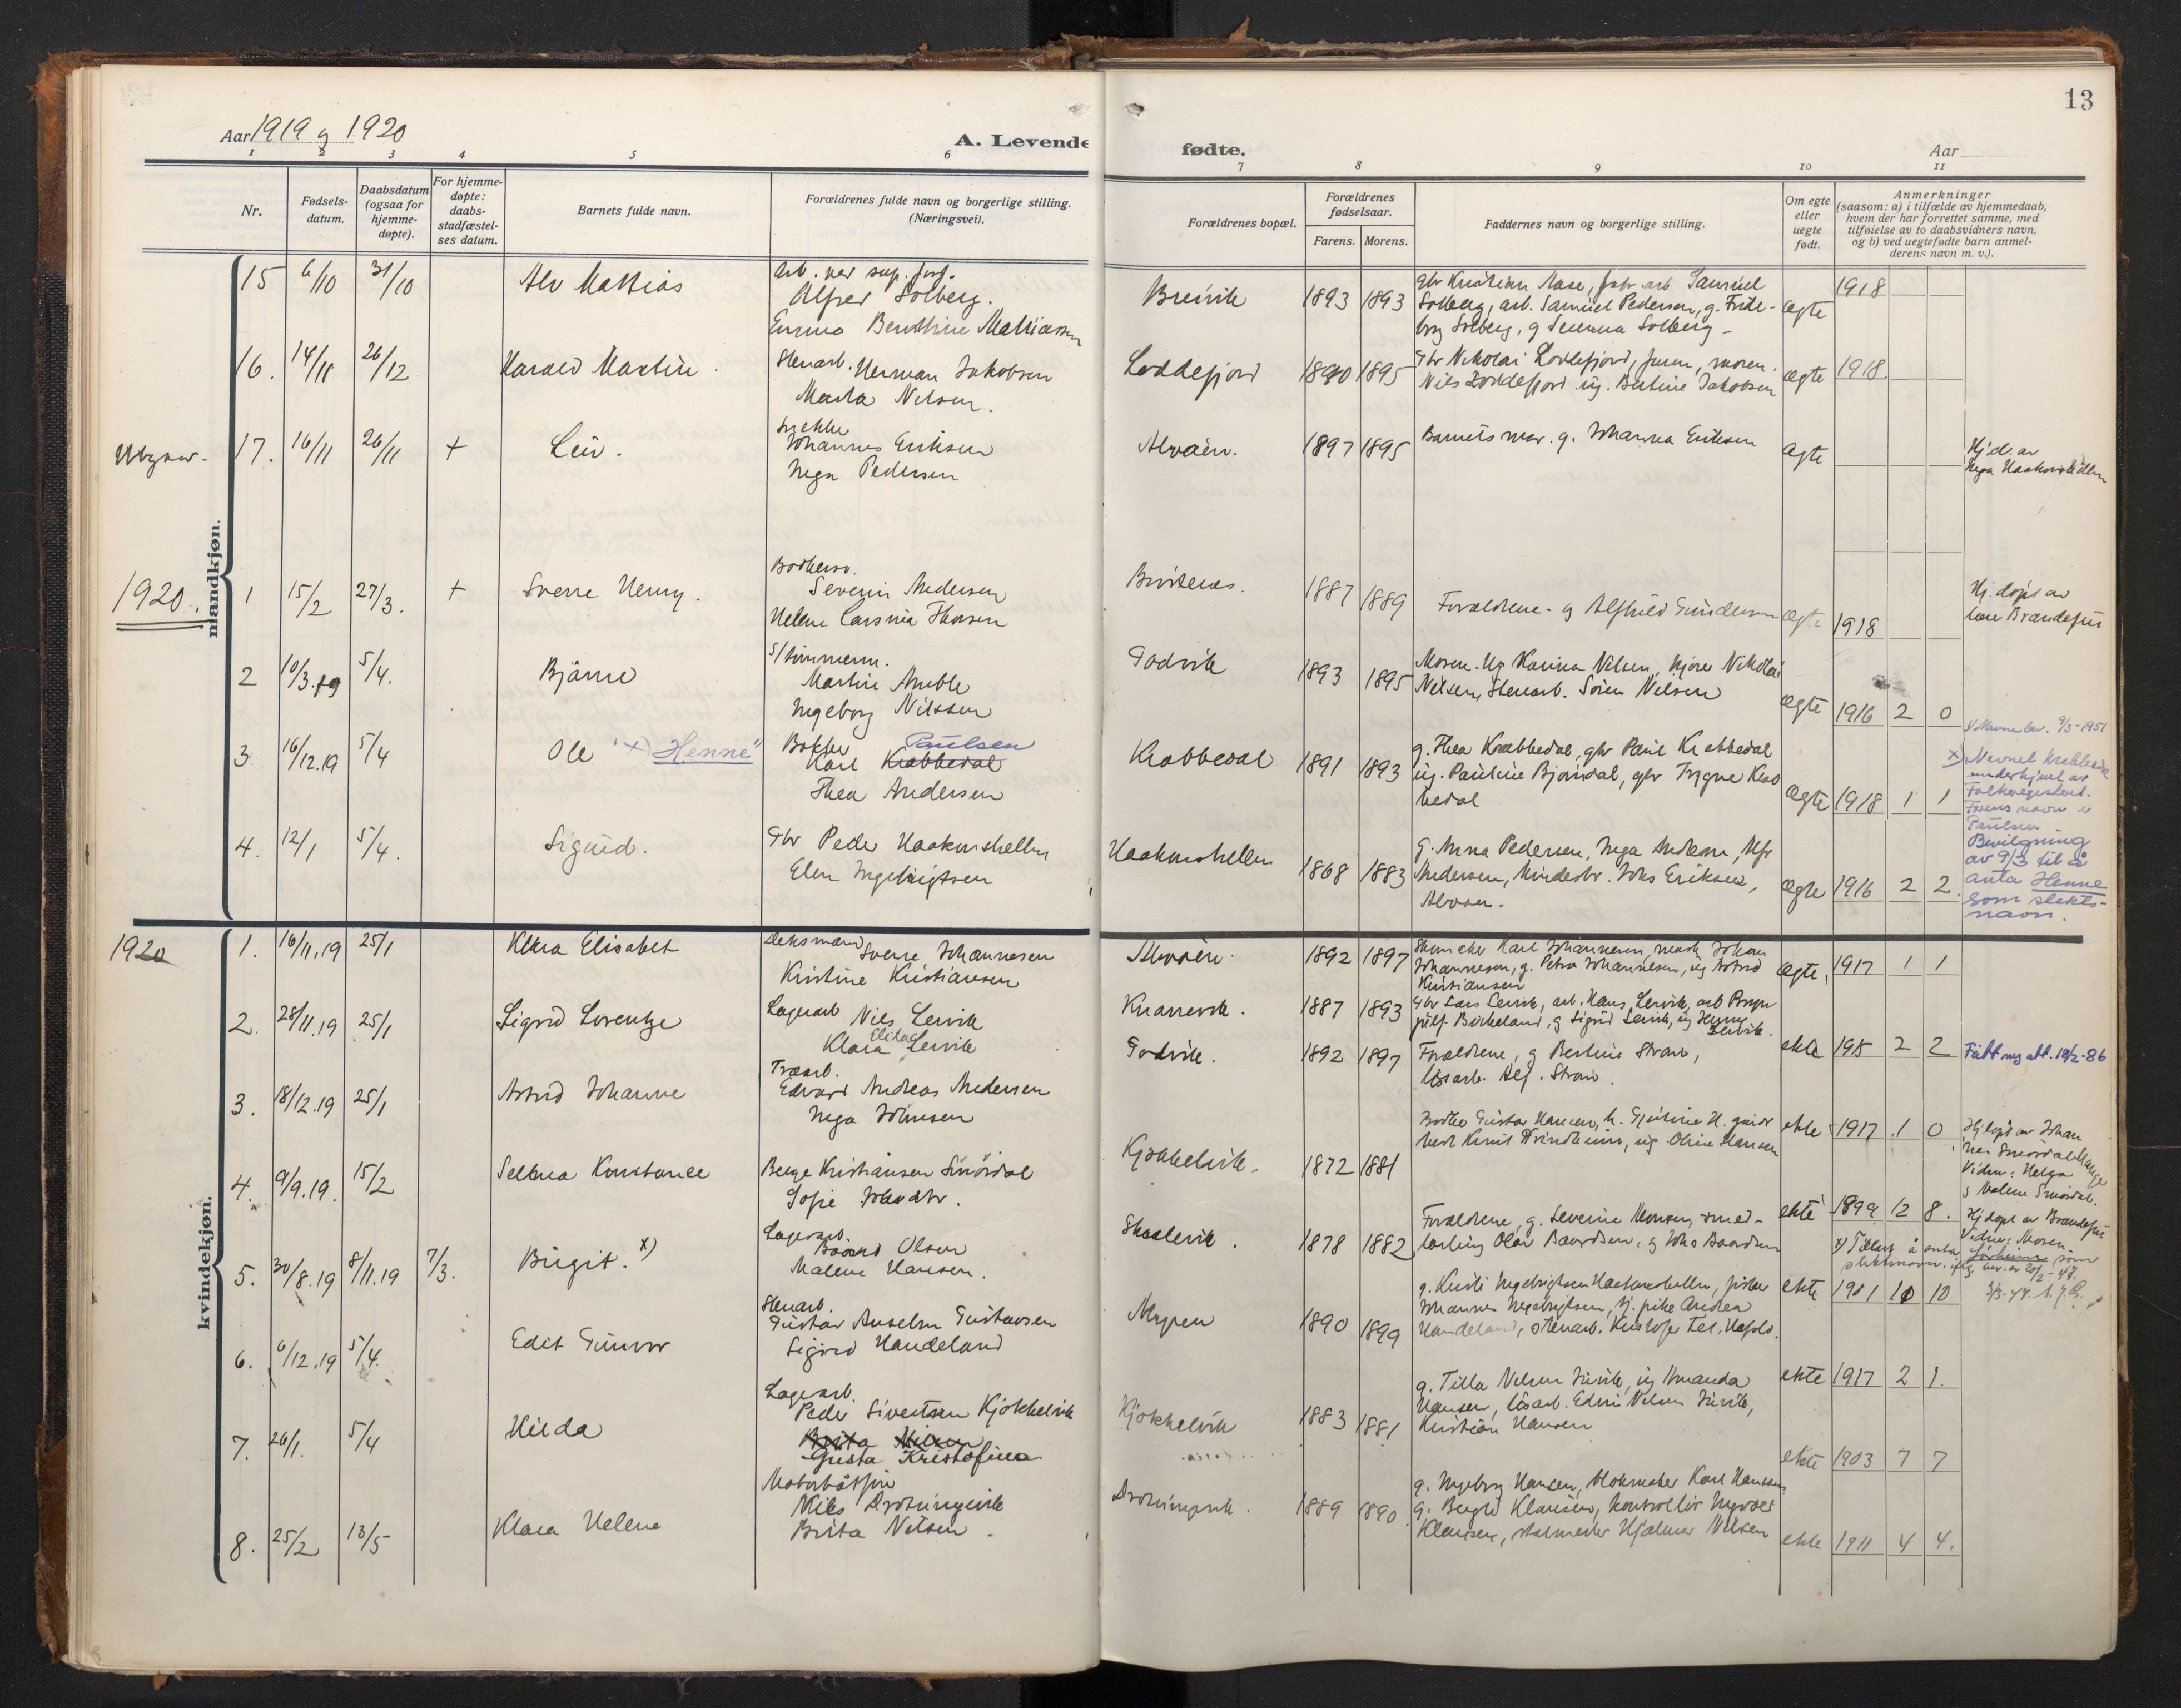 13
Aar 1919 g 1920
A. Levende fødte.
Aar
1 2 3 4 5 6 7 8 9 10 11
Nr.
Fødsels-
datum.
Daabsdatum
(ogsaa for
hjemme-
døpte).
For hjemme-
døpte:
daabs-
stadfæstel-
ses datum.
Barnets fulde navn.
Forældrenes fulde navn og borgerlige stilling.
(Næringsvei).
Forældrenes bopæl.
Forældrenes
fødselsaar.
Farens. Morens.
Faddernes navn og borgerlige stilling.
Om egte
eller
uegte
født.
Anmerkninger
(saasom: a) i tilfælde av hjemmedaab,
hvem der har forrettet samme, med
tilføielse av to daabsvidners navn,
og b) ved uegtefødte barn anmel-
derens navn m. v.).
mandkjøn.
15 6/10 31/10 Alv Mathias
Arb. ved
Alfred Solberg.
Emma Mathiassen
Breivik 1893 1893
Gbr Kristian Aase, arb Samuel
Solberg, arb. Samuel Pedersen, g.
Solberg, g Solberg
ægte 1918
16. 14/11 26/12 Harald Martin.
Stenarb. Herman Jakobsen
Marta Nilsen.
Loddefjord 1890 1895
Gbr Nikolai Loddefjord, faren, moren.
Nils Loddefjord ug. Bertine Jakobsen
ægte 1918
17. 16/11 26/11 + Leiv.
Johannes Eriksen
Inga Pedersen
Alvøen. 1897 1895
Barnets mor. g. Johanna Eriksen
ægte
Hj.d. av
Inga Haakonshellen
1920.
1 15/2 27/3. + Sverre Henry.
Severin Andersen
Helene Thorsen
1887 1889
Forældrene g Alfhild Gundersen
ægte 1918
Hj. døpt av
2 10/3.19 5/4. Bjarne
Martin
Ingeborg Nilssen
Godvik 1893 1895
Moren. Ug Karina Nilsen, Nikolai
Nilsen, Stenarb. Søren Nilsen
ægte 1916 2 0
3 16/12.19 5/4 Ole "x) Henne"
Bøkker Paulsen
Karl Krabbedal
Thea Andersen
Krabbedal 1891 1893
g. Thea Krabbedal, gbr Paul Krabbedal
ug. Pauline Bjørndal, gbr Trygve Krab
bedal
ægte 1918 1 1
x) Navnebev. 9/3-1951
x) Navnet Krabbedal
underkjent av
Folkeregisteret.
Farens navn er
Paulsen
Bevilgning
av 9/3 til å
anta Henne
som slekts-
navn.
4. 12/1 5/4. Sigurd.
Gbr Peder Haakonshellen
Elen Ingebrigtsen
Haakonshellen 1868 1883
G. Anna Pedersen, Inga Andersen,
Andersen, Mindor. Johs Eriksen,
Alvøen.
ægte 1916 2 2.
1920
kvindekjøn.
1. 16/11.19 25/1 Klara Elisabet
Sverre Johannesen
Kristine Kristiansen
Alvøen. 1892 1897
Karl Johannesen, Johan
Johannesen, g. Petra Johannesen, ug Astrid
Kristiansen
ægte. 1917 1 1
2. 28/11.19 25/1 Sigrid Lorentze
Lagerarb Nils Lervik
Klara Elida Lervik
Knarrevik. 1887 1893
Gbr Lars Lervik, arb. Hans Lervik, arb
Birkeland, g Sigrid Lervik, ug Henny
Lervik.
ekte 1915 2 2
Fått ny att. 18/2-86
3. 18/12.19 25/1 Astrid Johanne
Træarb.
Edvard Andreas Andersen
Inga Johnsen
Godvik. 1892 1897
Forældrene, g Bertine Strøm,
løsarb. Alf. Strøm.
ekte 1917 1 0
4. 9/9.19. 15/2 Selma Konstanse
Berge Kristiansen Smørdal
Sofie
Kjøkkelvik. 1872 1881
Gustav Hansen,
Knut Trindheim, ug Oline Hansen
ekte 1899 12 8.
Hj.døpt av Johan
Smørdal
Vidne: Helga
g Malene Smørdal.
5. 30/8.19 8/11.19 7/3. Birgit. x)
Lagerarb.
Baard Olsen
Malene Hansen.
Skaalevik. 1878 1882
Forældrene, g. Severine Monsen, smed-
lærling Olav Baardsen, g Johs Baardsen
ekte 1901 10 10
Hj døpt av
Vidne: Moren
x) å anta som
slektsnavn. bev. av 20/2-47.
6. 6/12.19 5/4. Edit Gunvor
Stenarb.
Gustav Anselm Gustavsen
Sigrid Handeland
Myren 1890 1899
g. Kristi Ingebrigtsen Haakonshellen, fisker
Johannes Ingebrigtsen, tj. pike Andrea
Handeland, stenarb. Kristofer
ekte 1917 2 1.
7. 26/1. 5/4 Hilda
Lagerarb.
Peder Sivertsen Kjøkkelvik
Brita Nilsen
Gusta Kristofina
Kjøkkelvik 1883 1881
g. Tilla Nilsen ug Amanda
Hansen, løsarb. Edvin Nilsen
Kristian Hansen
ekte 1903 7 7
8. 25/2 13/5 Klara Helene
Nils Drotningvik
Brita Nilsen.
Drotningvik. 1889 1890
g. Ingeborg Hansen, blokmaker Karl Hansen
g. Bergit Klausen, kontrollør Ingvald
Klausen, Hjalmar Nilsen
ekte 1911 4 4.